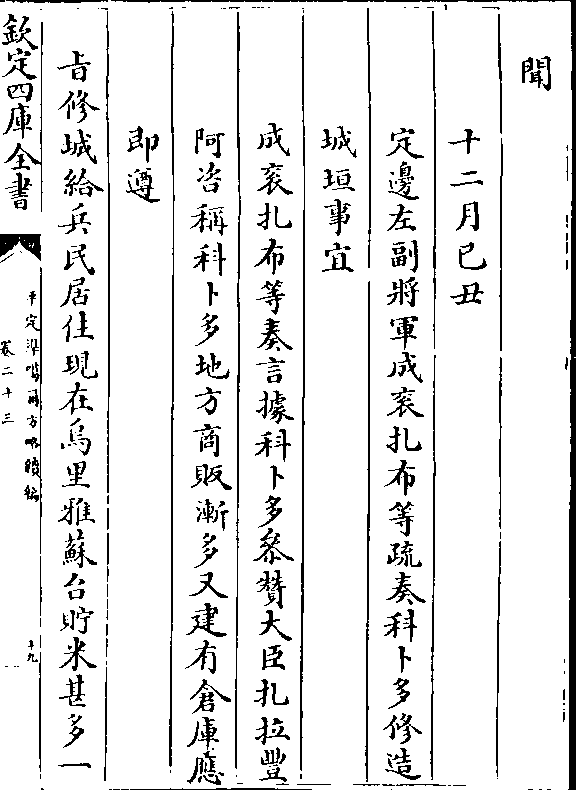 聞
十二月己丑
定邊左副將軍成衮扎布等疏奏科卜多修造
城垣事宜
成衮扎布等奏言據科卜多叅贊大臣扎拉豐
阿咨稱科卜多地方商販漸多又建有倉庫應
即遵
旨修城給兵民居住現在烏里雅蘇台貯米甚多一
欽定四庫全書
平定準噶爾方略續編
卷二十三
十九